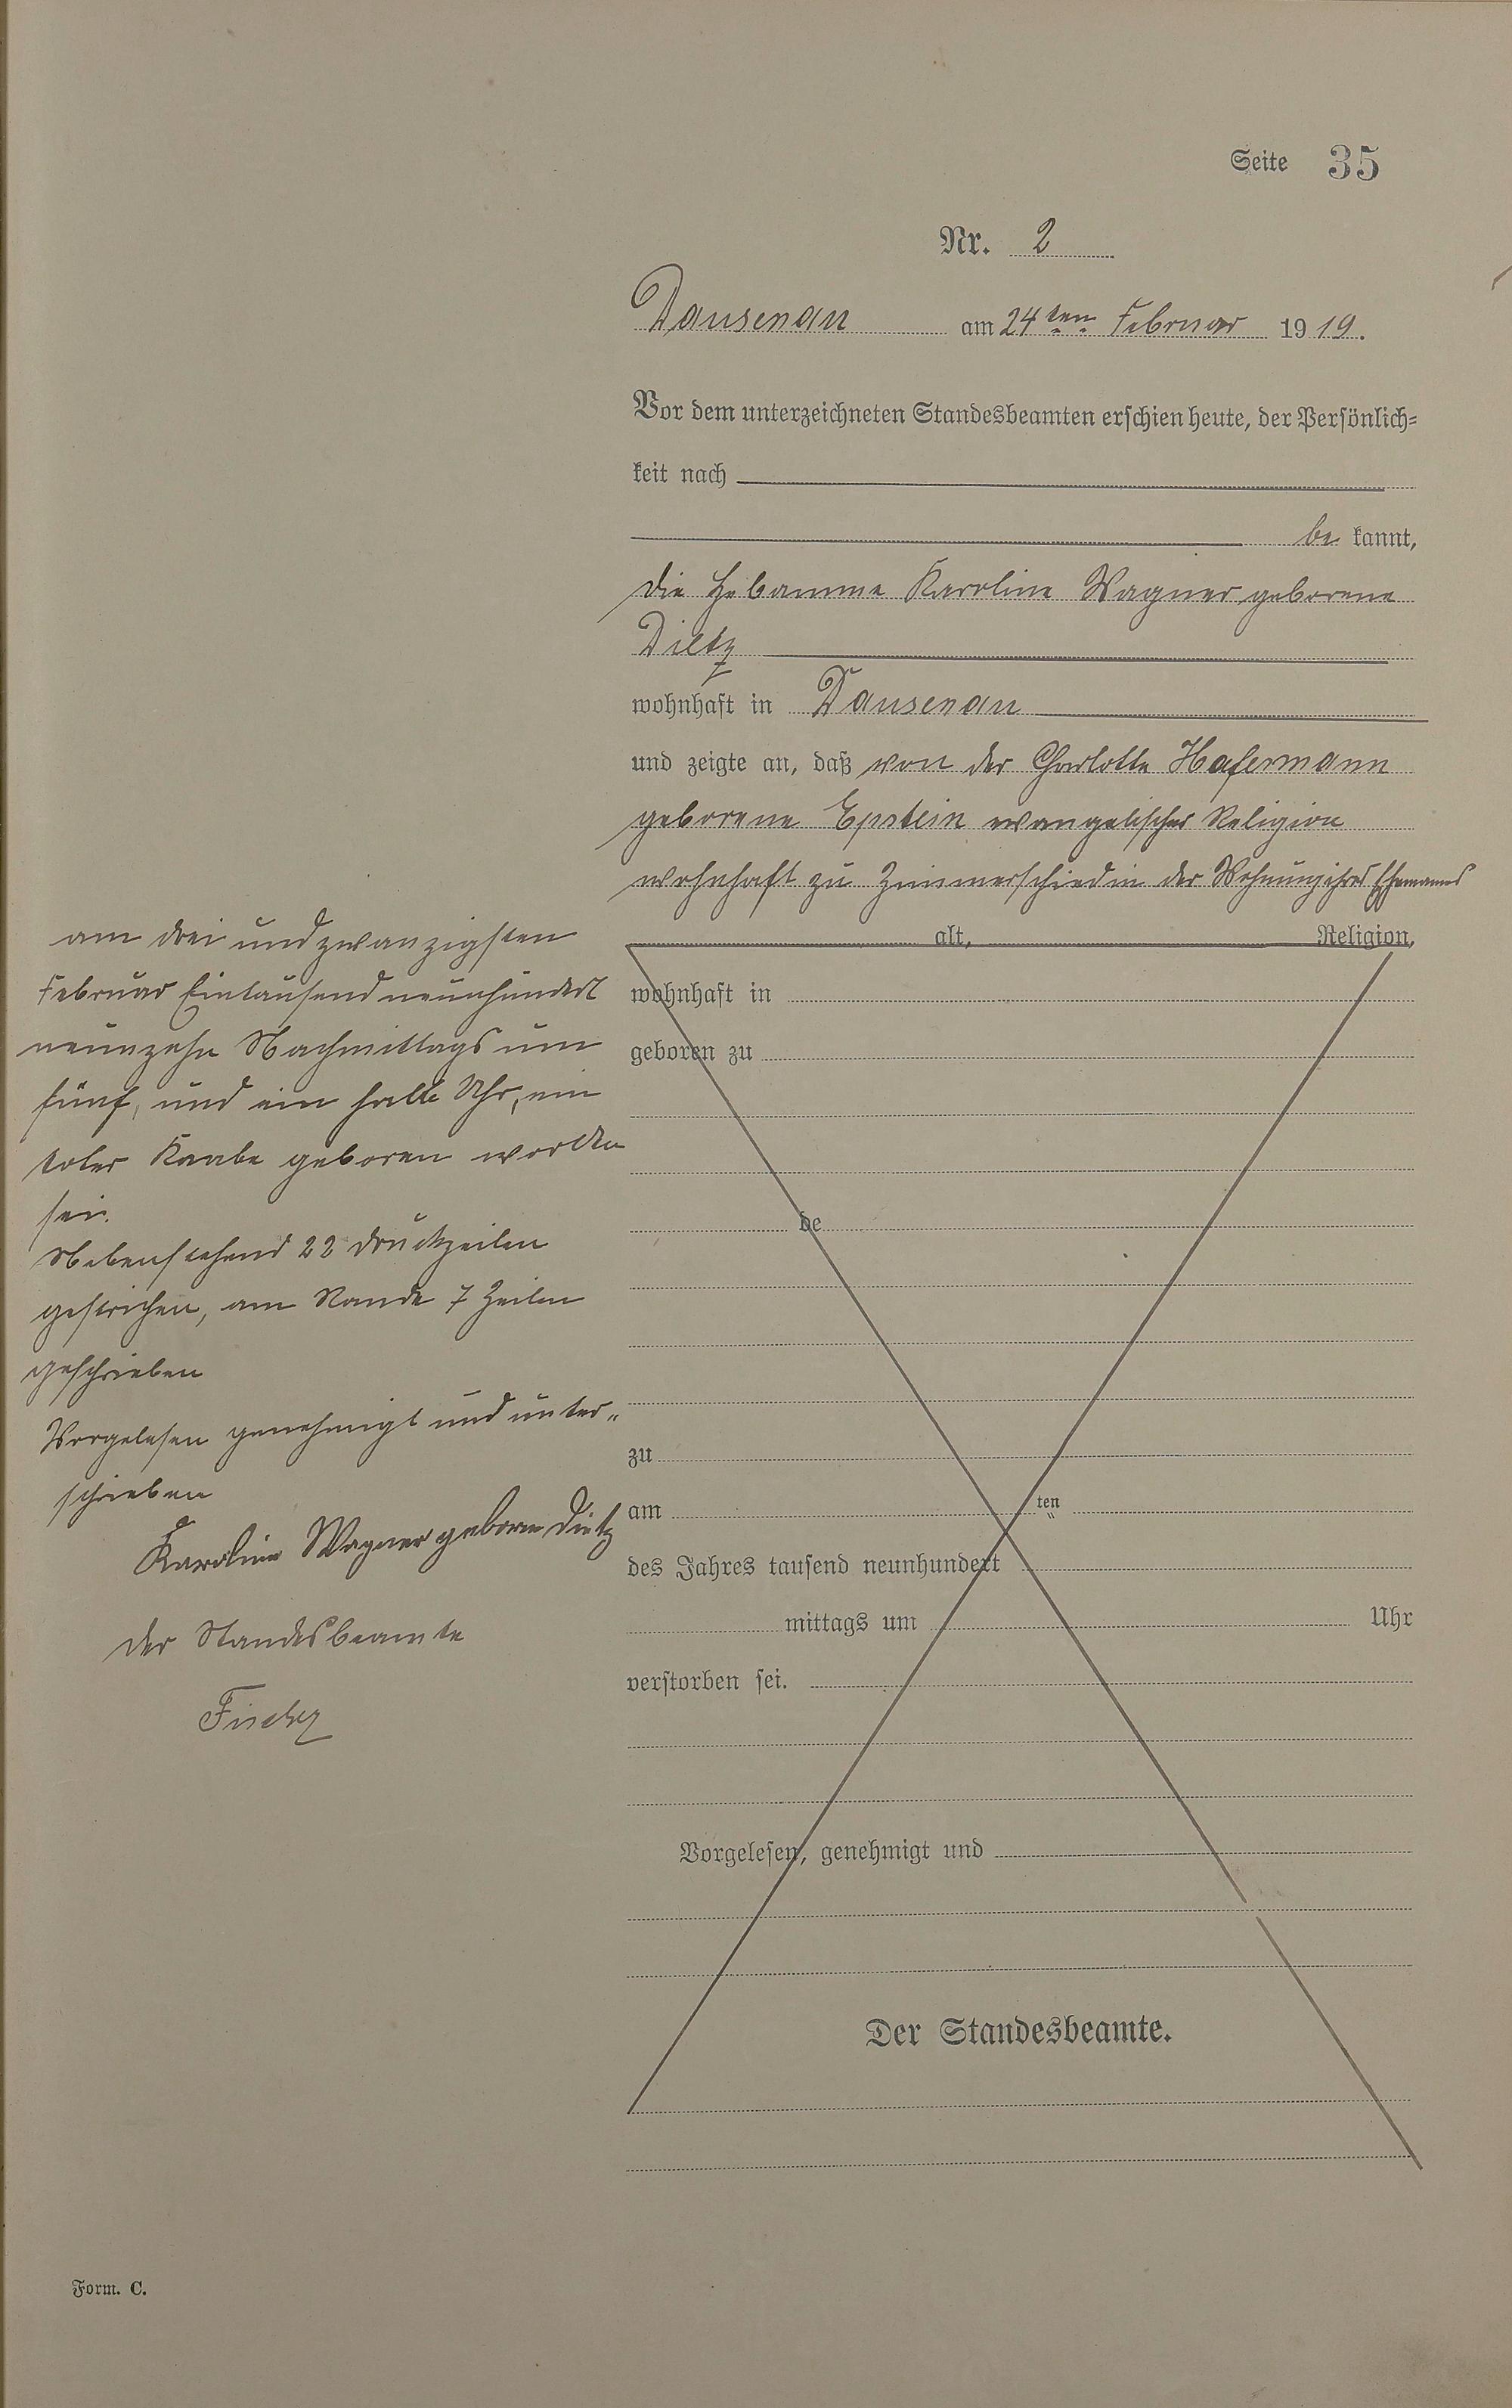 Seite 35
Nr. 2
Dausenau am 24ten Februar 1919.
Vor dem unterzeichneten Standesbeamten erschien heute, der Persönlich=
keit nach
be kannt,
die Hebamme Karoline Wagner geborene
Dietz
wohnhaft in Dausenau
und zeigte an, daß von der Charlotte Hafermann
geborene Epstein evangelischer Religion
wohnhaft zu Zimmerschied in der Wohnung ihres Ehemannes
alt, Religion,
wohnhaft in
geboren zu
de
zu
am ten
des Jahres tausend neunhundert
mittags um Uhr
verstorben sei.
Vorgelesen, genehmigt und
Der Standesbeamte.
am drei und zwanzigsten
Februar Eintausend neunhundert
neunzehn Nachmittags um
fünf, und ein halb Uhr, ein
toter Knabe geboren worden
sei.
Nebenstehend 22 Druckzeilen
gestrichen, am Rande 7 Zeilen
geschrieben
Vorgelesen genehmigt und unter„
schrieben
Karoline Wagner geborne Dietz
Der Standesbeamte
Fischer
Form. C.